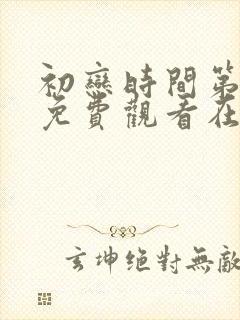 初戀時間第
免費觀看在
玄坤絕對無敵